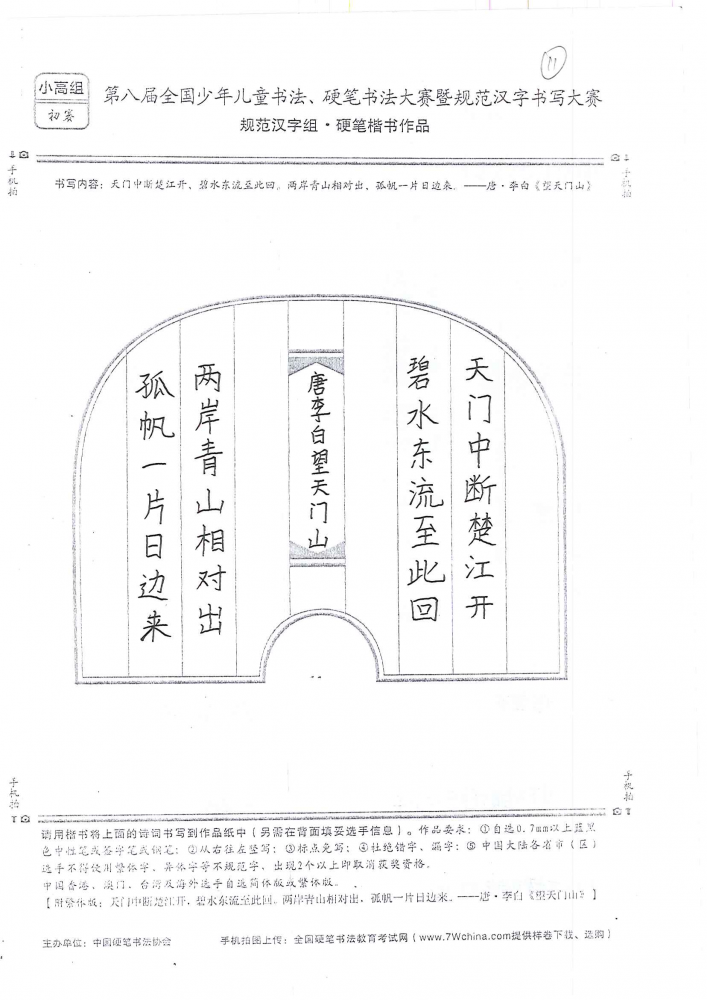 11
小高组
初赛
第八届全国少年儿童书法、硬笔书法大赛暨规范汉字书写大赛
规范汉字组·硬笔楷书作品
手机拍
手机拍
书写内容：天门中断楚江开，碧水东流至此回。两岸青山相对出，孤帆一片日边来。——唐·李白《望天门山》
天门中断楚江开
碧水东流至此回
唐李白望天门山
两岸青山相对出
孤帆一片日边来
手机拍
手机拍
请用楷书将上面的诗词书写到作品纸中（另需在背面填妥选手信息）。作品要求：①自选0.7mm以上蓝黑
色中性笔或签字笔或钢笔；②从右往左竖写；③标点免写；④杜绝错字、漏字；⑤中国大陆各省市（区）
选手不得使用繁体字、异体字等不规范字，出现2个以上即取消获奖资格。
中国香港、澳门、台湾及海外选手自选简体版或繁体版。
【附繁体版：天门中断楚江开，碧水东流至此回。两岸青山相对出，孤帆一片日边来。——唐·李白《望天门山》】
主办单位：中国硬笔书法协会
手机拍图上传：全国硬笔书法教育考试网（www.7Wchina.com提供样卷下载、选购）